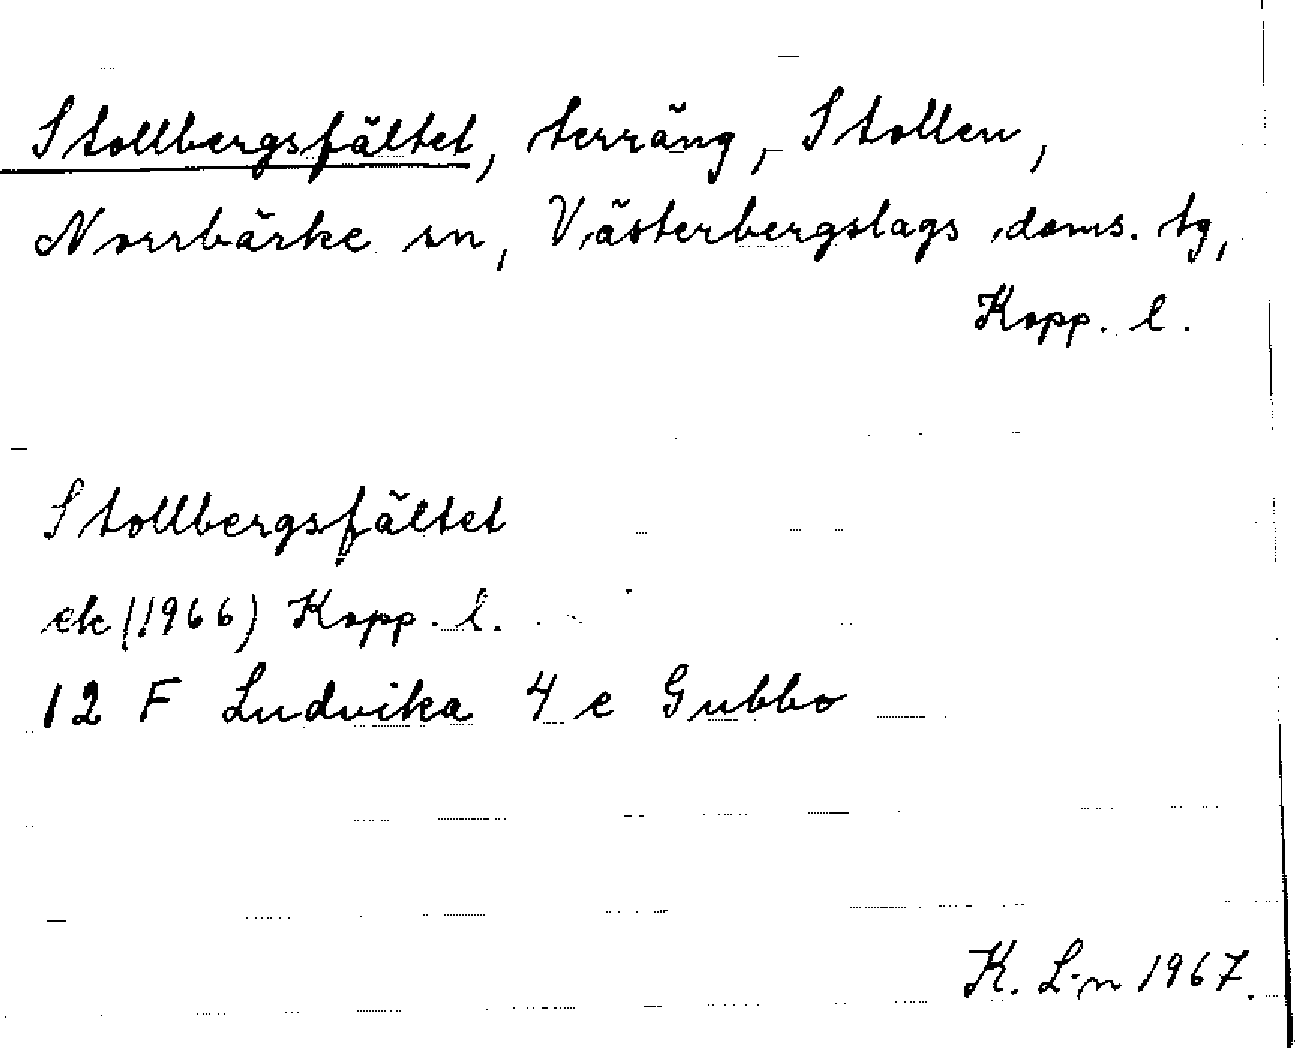 Stollbergsfältet, terräng, Stollen,
Norrbärke sn, Västerbergslags doms. tg,
Kopp. l.
Stollbergsfältet
ek (1966) Kopp. l.
12 F Ludvika 4 e Gubbo
K. L-n 1967.